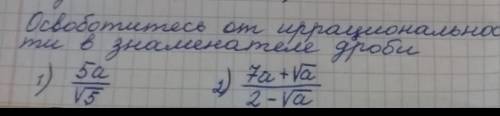 Освоботитесь от иррациональнос
ти в знаменателе дроби
1) 5a/√5 2) 7a+√a/2-√a